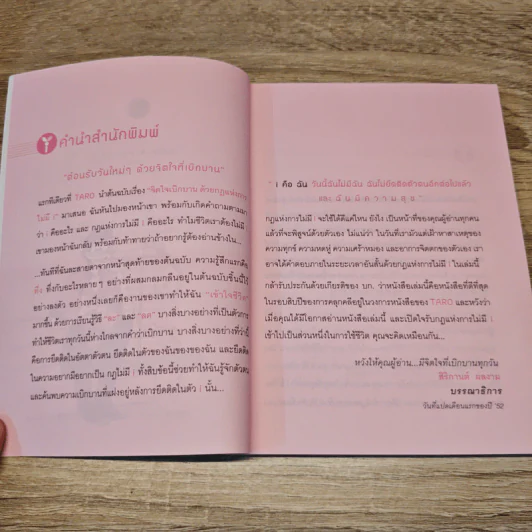 คำนำสำนักพิมพ์
"ต้อนรับวันใหม่ๆ ด้วยจิตใจที่เบิกบาน"
แรกทีเดียวที่ TARO นำต้นฉบับเรื่อง "จิตใจเบิกบาน ด้วยกฎแห่งการ
ไม่มี i" มาเสนอ ฉันหันไปมองหน้าเขา พร้อมกับเกิดคำถามตามมา
ว่า i คืออะไร และ กฎแห่งการไม่มี i คืออะไร ทำไมชีวิตเราต้องไม่มี
เขามองหน้าฉันกลับ พร้อมกับท้าทายว่าถ้าอยากรู้ต้องอ่านข้างใน...
...ทันทีที่ฉันละสายตาจากหน้าสุดท้ายของต้นฉบับ ความรู้สึกแรกคือ
ทึ่ง ทึ่งกับอะไรหลาย ๆ อย่าง ที่ผสมกลมกลืนอยู่ในต้นฉบับชิ้นนี้ได้
อย่างลงตัว อย่างหนึ่งเลยก็คืองานของเขาทำให้ฉัน "เข้าใจชีวิต"
มากขึ้น ด้วยการเรียนรู้วิธี "ละ" และ "ลด" บางสิ่งบางอย่างที่เป็นตัวการ
ทำให้ชีวิตเราทุกวันนี้ห่างไกลจากคำว่าเบิกบาน บางสิ่งบางอย่างที่ว่านี้
คือการยึดติดในอัตตาตัวตน ยึดติดในตัวของฉันของของฉัน และยึดติด
ในความอยากมีอยากเป็น กฎไม่มี i ทั้งสิบข้อนี้ช่วยทำให้ฉันรู้จักตัวตน
และค้นพบความเบิกบานที่แฝงอยู่หลังการยึดติดในตัว i นั้น...
" i คือ ฉัน วันนี้ฉันไม่มีฉัน ฉันไม่ยึดติดตัวตนอีกต่อไปแล้ว
และฉันมีความสุข"
กฎแห่งการไม่มี i จะใช้ได้ดีแค่ไหน ยังไง เป็นหน้าที่ของคุณผู้อ่านทุกคน
แล้วที่จะพิสูจน์ด้วยตัวเอง ไม่แน่ว่า ในวันที่เรามัวแต่เฝ้าหาสาเหตุของ
ความทุกข์ ความหดหู่ ความเศร้าหมอง และอาการจิตตกของตัวเอง เรา
อาจได้คำตอบภายในระยะเวลาอันสั้นด้วยกฎแห่งการไม่มี i ในเล่มนี้
กล้ารับประกันด้วยเกียรติของ บก. ว่าหนังสือเล่มนี้คือหนังสือที่ดีที่สุด
ในรอบสิบปีของการคลุกคลีอยู่ในวงการหนังสือของ TARO และหวังว่า
เมื่อคุณได้มีโอกาสอ่านหนังสือเล่มนี้ และเปิดใจรับกฎแห่งการไม่มี i
เข้าไปเป็นส่วนหนึ่งในการใช้ชีวิต คุณจะคิดเหมือนกัน...
หวังให้คุณผู้อ่าน...มีจิตใจที่เบิกบานทุกวัน
สิริกานต์ ผลงาม
บรรณาธิการ
วันที่แปดเดือนแรกของปี '52